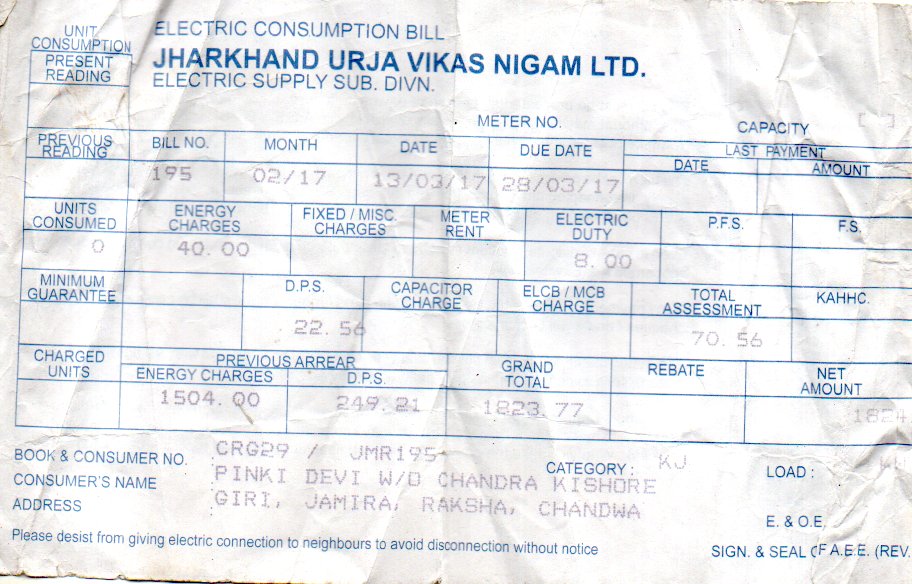 ELECTRIC CONSUMPTION BILL
JHARKHAND URJA VIKAS NIGAM LTD.
ELECTRIC SUPPLY SUB. DIVN.
UNIT CONSUMPTION
PRESENT READING
METER NO. CAPACITY
PREVIOUS READING BILL NO. MONTH DATE DUE DATE LAST PAYMENT
DATE AMOUNT
195 02/17 13/03/17 28/03/17
UNITS CONSUMED ENERGY CHARGES FIXED / MISC. CHARGES METER RENT ELECTRIC DUTY P.F.S. F.S.
0 40.00 8.00
MINIMUM GUARANTEE D.P.S. CAPACITOR CHARGE ELCB / MCB CHARGE TOTAL ASSESSMENT KAHHC.
22.56 70.56
CHARGED UNITS PREVIOUS ARREAR GRAND TOTAL REBATE NET AMOUNT
ENERGY CHARGES D.P.S.
1504.00 249.21 1823.77 1824
BOOK & CONSUMER NO. CRG29 / JMR195 CATEGORY : KJ LOAD :
CONSUMER'S NAME PINKI DEVI W/O CHANDRA KISHORE
ADDRESS GIRI, JAMIRA, RAKSHA, CHANDWA
E. & O.E.
Please desist from giving electric connection to neighbours to avoid disconnection without notice
SIGN. & SEAL OF A.E.E. (REV.